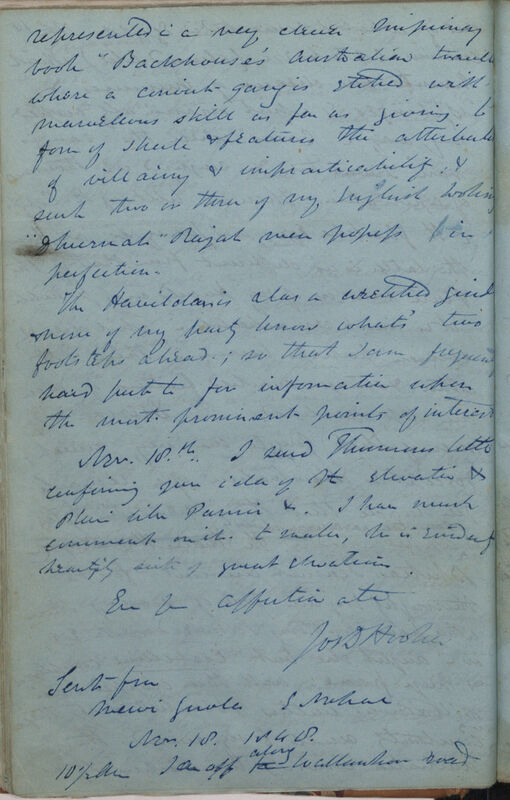 represented in a very clever missionary
book "Backhouse's Australian travels
where a convict gang is etched with
marvellous skill as far as giving to
form of skulls & features the attributes
of villainy & impracticability: &
such two or three of my English looking
" Rajah men possess in
perfection.
The Havildar is alas a wretched guide
none of my party know what's two
footsteps ahead.; so that I am frequently
hard put to for information when
the most prominent points of interest
Nov. 18.th. I send Thomsons letter
confirming your idea of elevation &
Plain like Pamir &. I have much
comment on it to make, he is evidently
heartily sick of great elevations.
Ever yr affectionate
Jos D Hooker
Sent from
Mewi Guola E Nepal
Nov. 18. 1848.
10 am I am off along Wallanchoon road